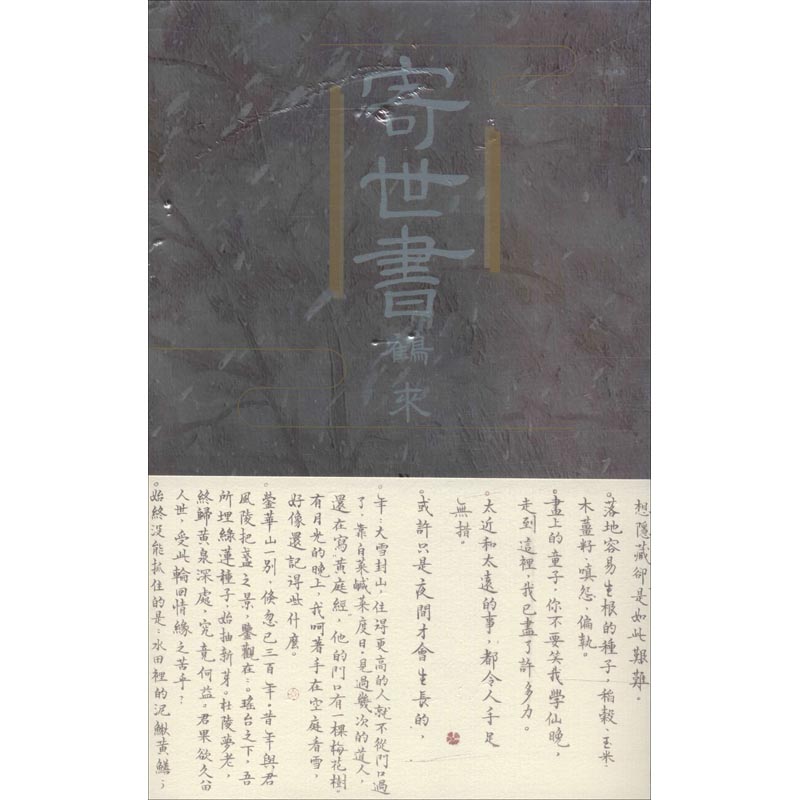 寄世書
鶴來
想隱藏卻是如此艱難。
。落地容易生根的種子，稻穀、玉米、
木薑籽，嗔怨、偏執。
。畫上的童子，你不要笑我學仙晚，
走到這裡，我已盡了許多力。
。太近和太遠的事，都令人手足
無措。
。或許只是夜間才會生長的，
。年，大雪封山，住得更高的人就不從門口過
了，靠白菜鹹菜度日。見過幾次的道人，
還在寫黃庭經，他的門口有一棵梅花樹。
有月光的晚上，我呵著手在空庭看雪，
好像還記得些什麼。
。瑩華山一別，倏忽已三百年。昔年與君
風陵把盞之景，鑒觀在。瑤台之下，吾
所埋綠蓮種子，始抽新芽。杜陵夢老，
終歸黃泉深處，究竟何益。君果欲久留
人世，受此輪回情緣之苦乎？
。始終沒能抓住的是：水田裡的泥鰍黃鱔；